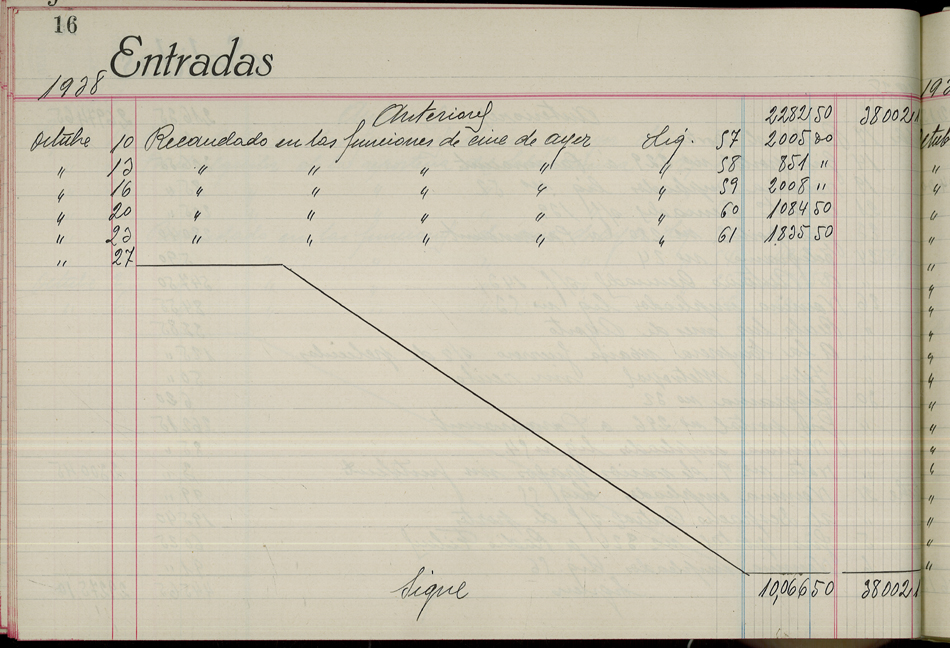 16
Entradas
1938
Anterior 2282 50 38002 1
Octubre 10 Recaudado en las funciones de cine de ayer Liq. 57 2005 50
" 13 " " " " " 58 851 "
" 16 " " " " " 59 2008 "
" 20 " " " " " 60 1084 50
" 23 " " " " " 61 1835 50
" 27
Sigue 10,066 50 38002 1